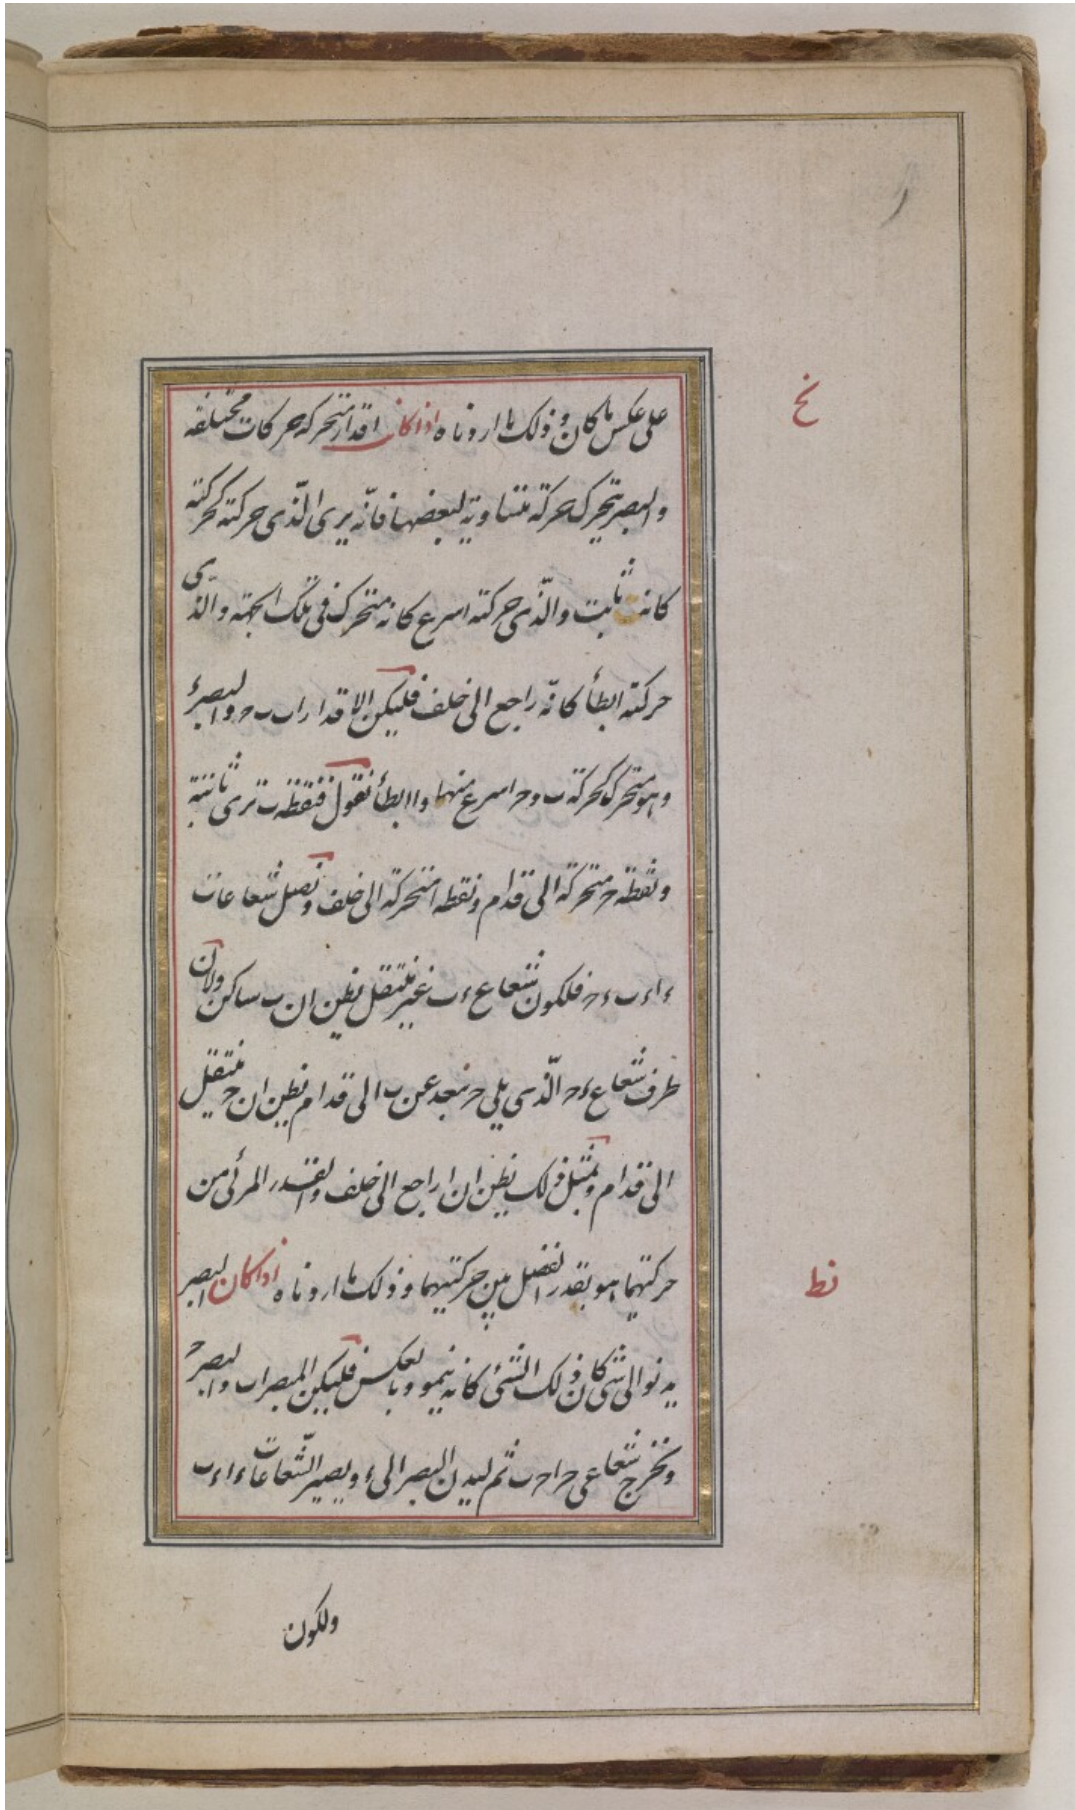 نح
على عكس ما كان وذلك ما اردناه اذا كان اقدار متحركة حركات مختلفه
والبصر يتحرك حركة متساوية لبعضها فانّه يرى الّذى حركته كحركته
كانه ثابت والّذى حركته اسرع كانه متحرك فى تلك الجهة والذى
حركته ابطأ كانّه راجع الى خلف فليكن الاقدار ا ب ح والبصر ء
وهو متحرك كحركة ب و ح اسرع منهما و ا ابطأ نقول فنقطة ب ترى ثابتة
ونقطة ح متحركة الى قدام ونقطه ا متحركة الى خلف ونصل شعاعات
ء ا ء ب ء ح فلكون شعاع ء ب غير منتقل نظن ان ب ساكن ولان
طرف شعاع ء ح الّذى يلى ح نبعد عن ب الى قدام نظن ان ح منتقل
الى قدام وبمثل ذلك نظن ان ا راجع الى خلف والقدر المرئى من
حركتيهما هو بقدر الفضل بين حركتيهما وذلك ما اردناه اذا كان البصر
نط
يدنو الى شى كان ذلك الشئ كانه ينمو وبالعكس فليكن المبصر ا ب والبصر ح
ونخرج شعاعى ح ا ح ب ثم ليدن البصر الى ء ويصير الشّعاعات ء ا ء ب
ولكون